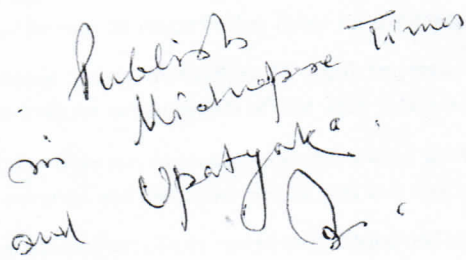 Publish
in Midnapore Times
and Upatyaka.